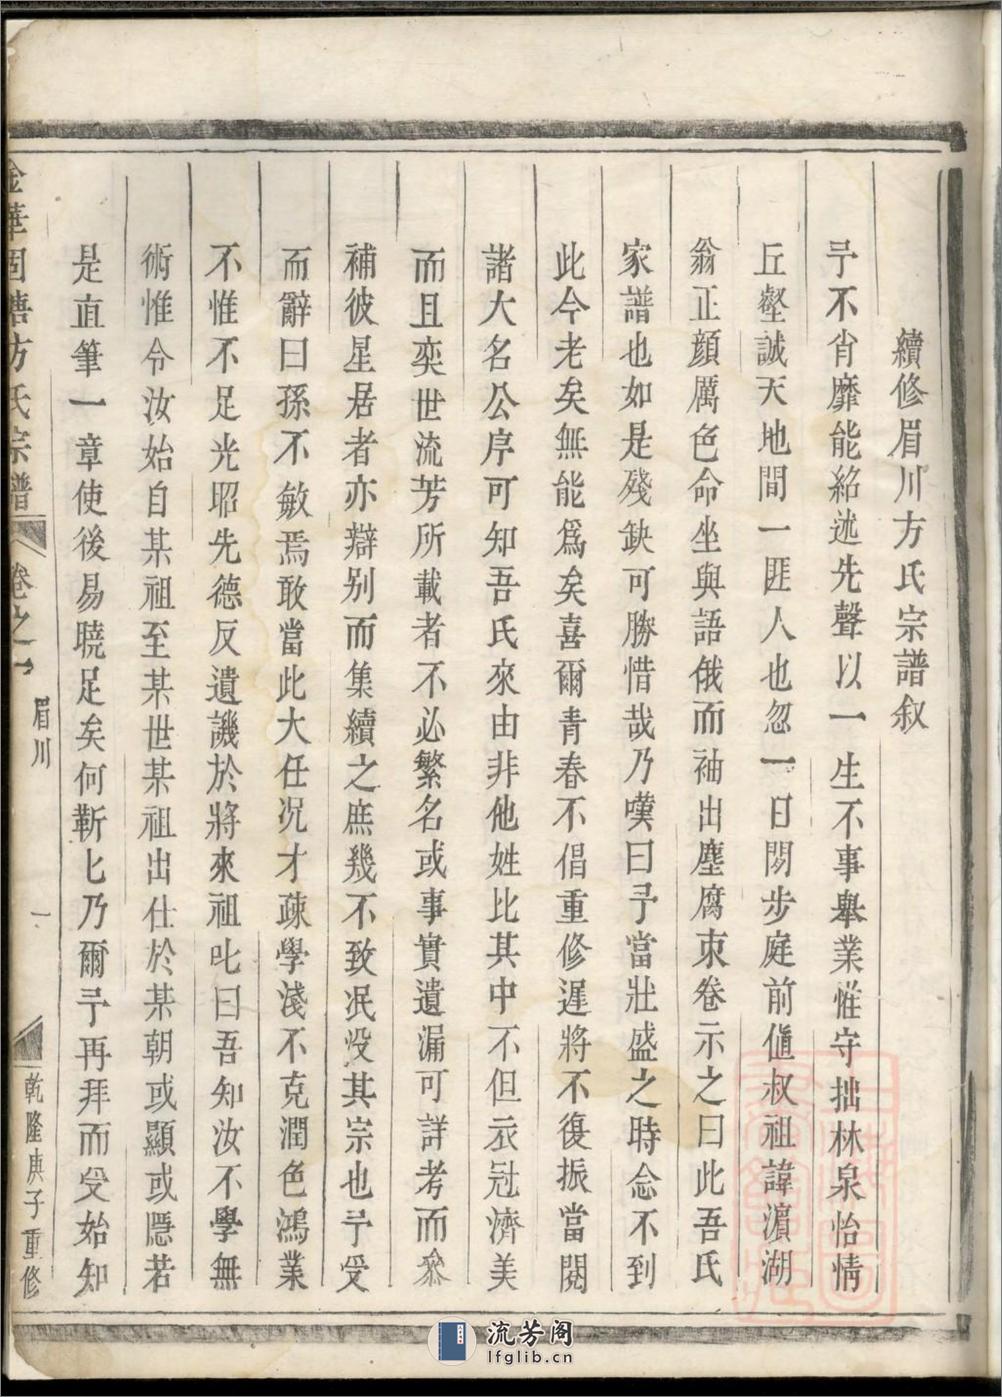 續修眉川方氏宗譜叙
予不肖靡能紹述先聲以一生不事舉業惟守拙林泉怡情
丘壑誠天地間一匪人也忽一日閒步庭前值叔祖諱濵湖
翁正顔厲色命坐與語俄而袖出塵腐朿卷示之曰此吾氏
家譜也如是殘缺可勝惜哉乃嘆曰予當壯盛之時念不到
此今老矣無能爲矣喜爾青春不倡重修遲將不復振當閱
諸大名公序可知吾氏來由非他姓比其中不但衣冠濟美
而且奕世流芳所載者不必繁名或事實遺漏可詳考而叅
補彼星居者亦辯别而集續之庶幾不致泯没其宗也予受
而辭曰孫不敏焉敢當此大任况才疎學淺不克潤色鴻業
不惟不足光昭先德反遺譏於將來祖叱曰吾知汝不學無
術惟令汝始自某祖至某世某祖出仕於某朝或顯或隱若
是直筆一章使後易曉足矣何靳乜乃爾予再拜而受始知
金華固塘方氏宗譜
卷之一
眉川
一
乾隆庚子重修
流芳阁
lfglib.cn